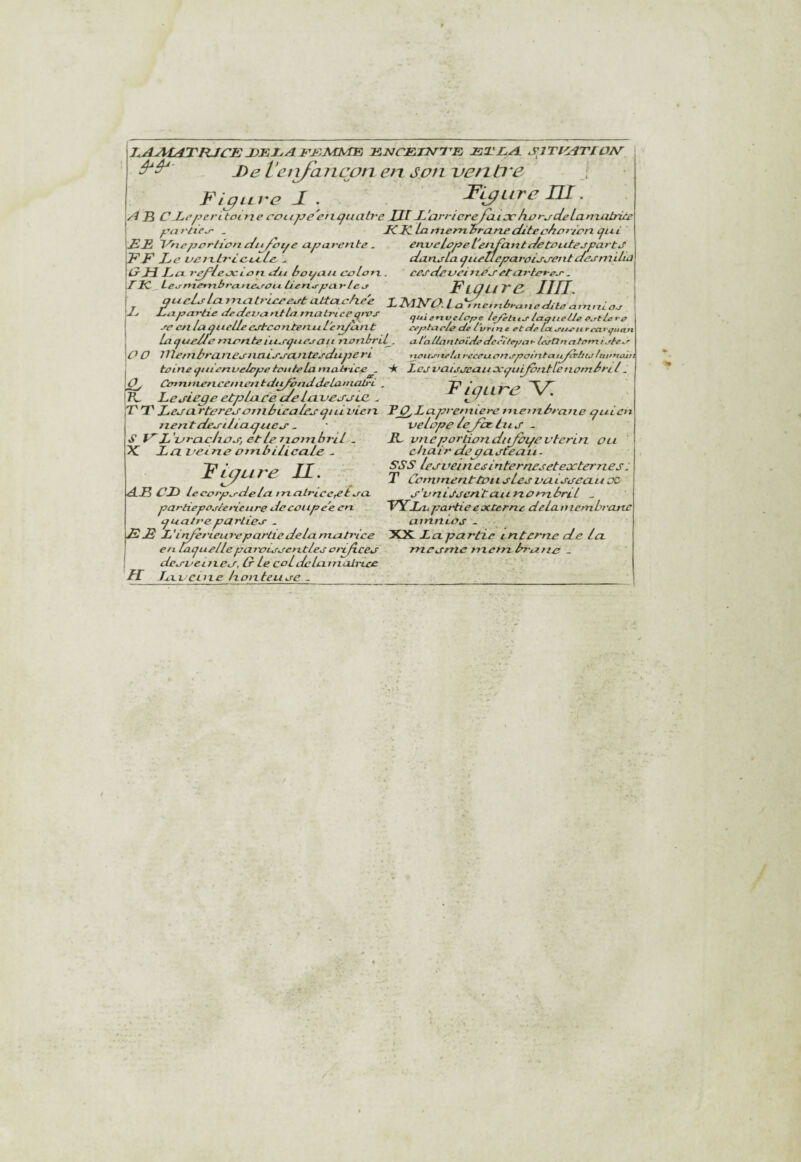 LA MATRICE DE LA FEMME ENCEINTE ET LA SITVATION
De l'enfançon en son ventre
Figure I.
A B C Le peritoine coupe' en quatre
parties
EE Vne portion du foye aparente
FF Le ventricule
GH La reflexion du boyau colon
IK Les membranes ou liens par les
quels la matrice est attachée
L La partie de devant la matrice gros
se en laquelle est contenu l'enfant
laquelle monte iusques au nonbril
OO Membranes naissantes du peri
toine qui envelope toute la matrice
Q Commencement du fond de la matri.
R Le siege et place de la vessie
TT Les arteres ombicales qui vien
nent des iliaques
S V L'vrachos, et le nombril
X La veine ombilicale
Figure II.
AB CD Le corps de la matrice, et sa
partie posterieure decoupée en
quatre parties
EE L'inferieure partie de la matrice
en laquelle paroissent les orifices
des veines, & le col de la matrice
H La veine honteuse
Figure III.
III L'arriere faix hors de la matrice
KK La membrane dite chorion qui
envelope l'enfant de toutes parts
dans la quelle paroissent des milia
ces de veines et arteres
Figure IIII.
LMNO. La membrane dite amnios
qui envelope le fetus laquelle est le re
ceptacle de l'vrine et de la sueur car quan
a l'allantoide decritepar les Anatomistes
nous ne la recevons point au fœtus humain
* Les vaisseaux qui font le nombril
Figure V.
PQ La premiere membrane qui en
velope le fœtus
R vne portion du foye vterin ou
chair de gasteau
SSS les veines internes et externes.
T Comment tous les vaisseaux
s'vnissent au nombril
VY La partie externe de la membrane
amnios
XX La partie interne de la
mesme membrane